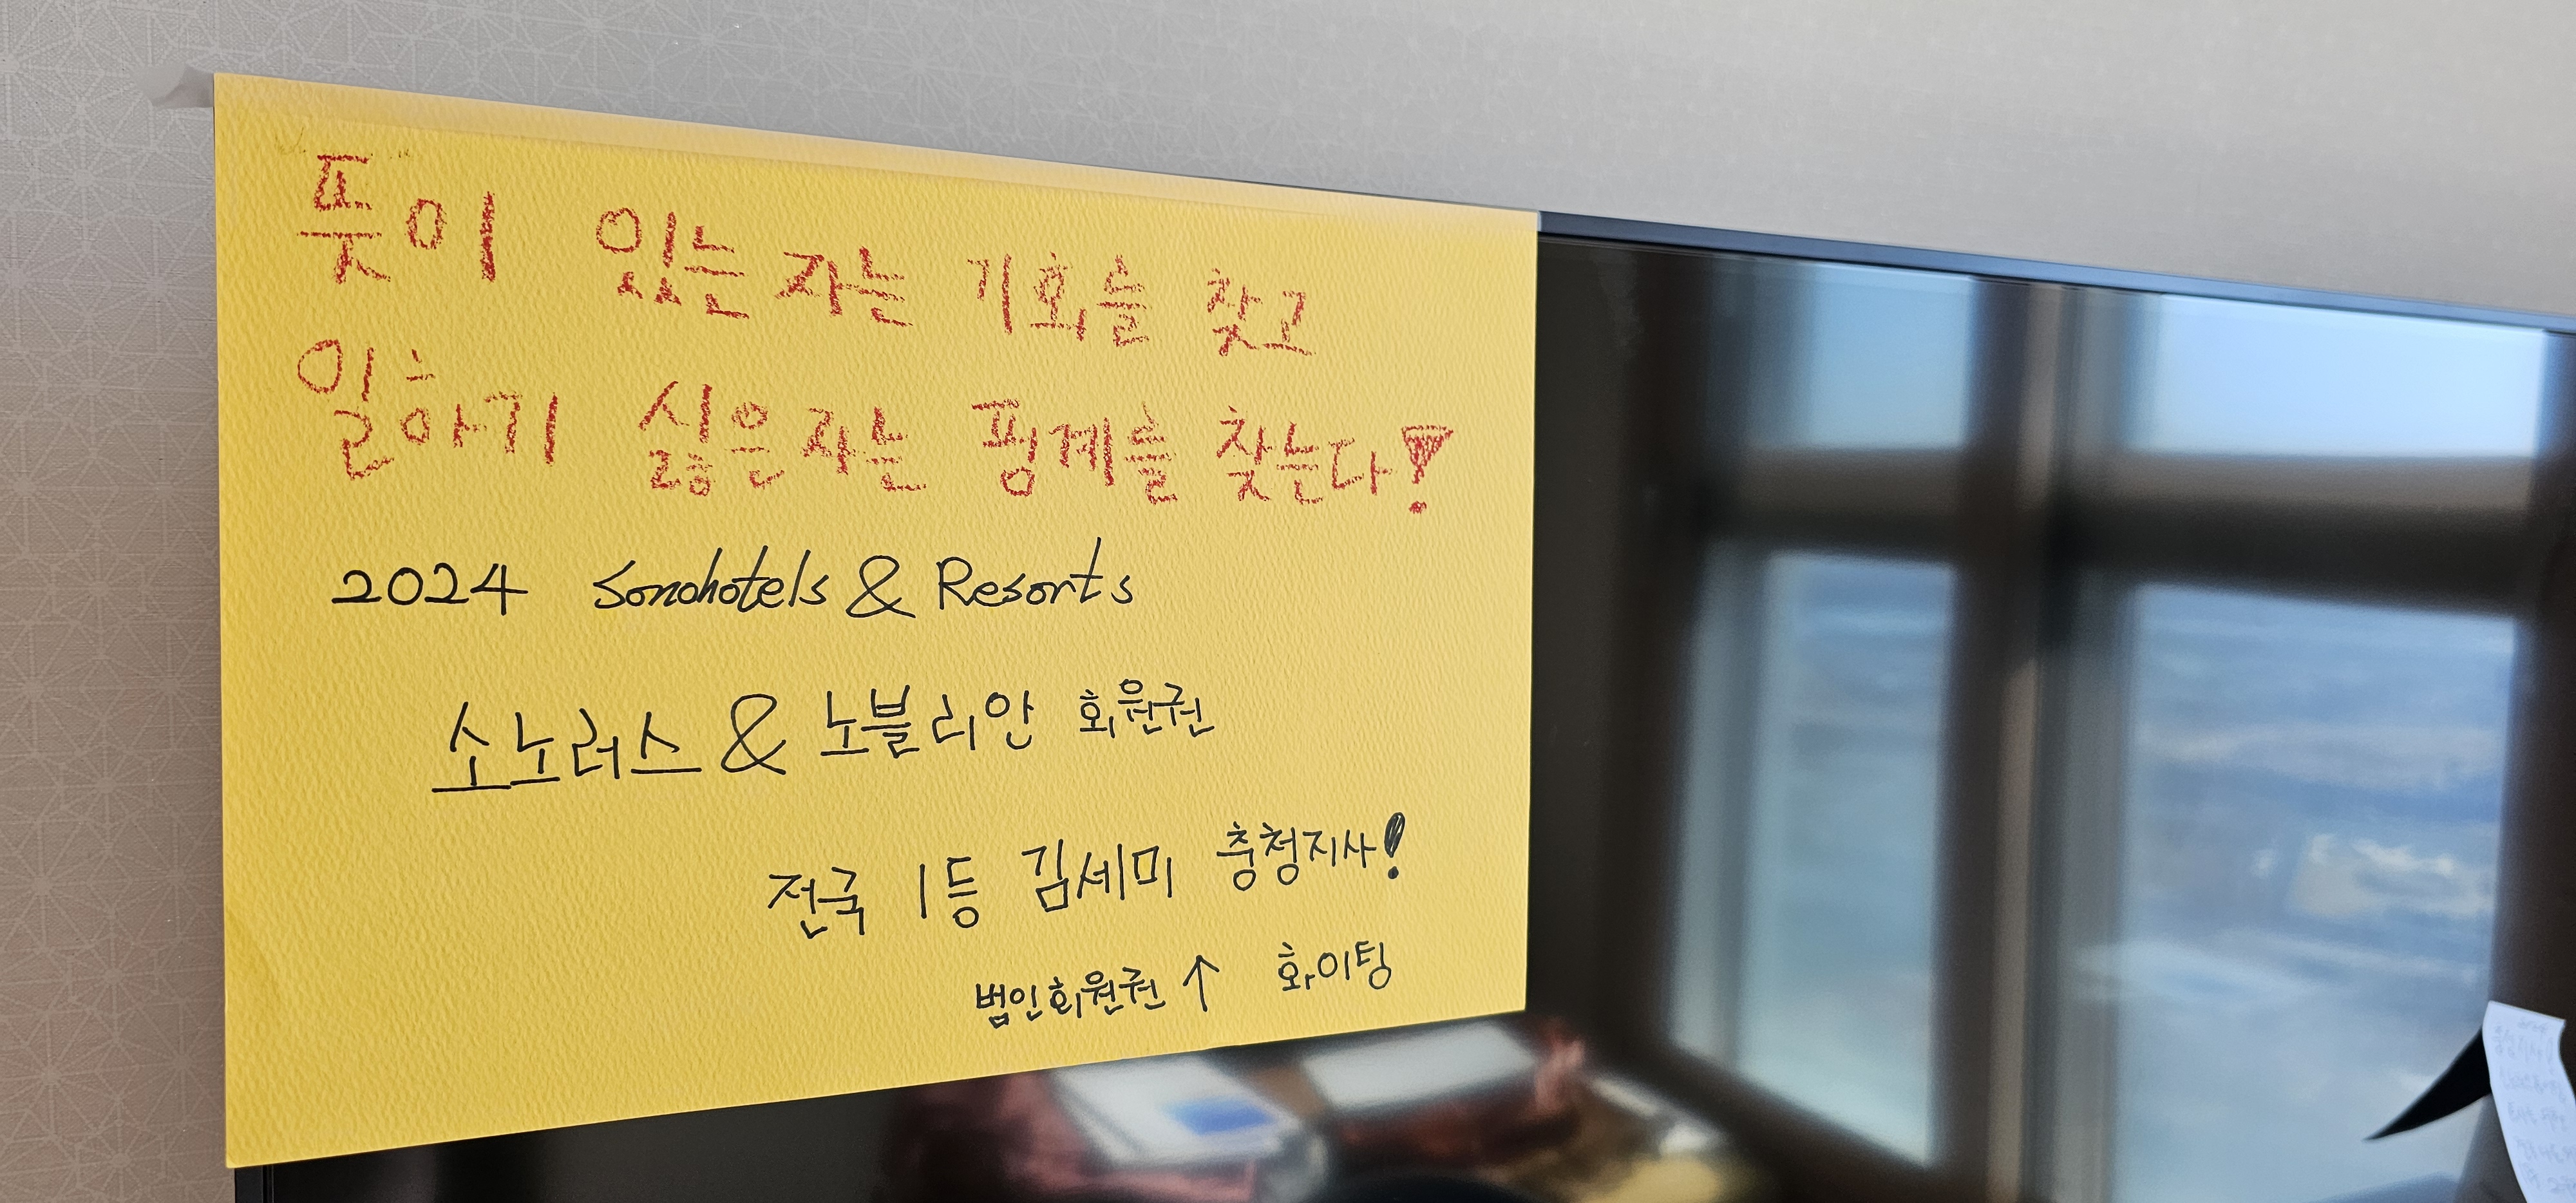 뜻이 있는 자는 기회를 찾고
일하기 싫은 자는 핑계를 찾는다!
2024 Sonohotels & Resorts
소노러스 & 노블리안 회원권
전국 1등 김세미 충청지사!
법인회원권 ↑ 화이팅